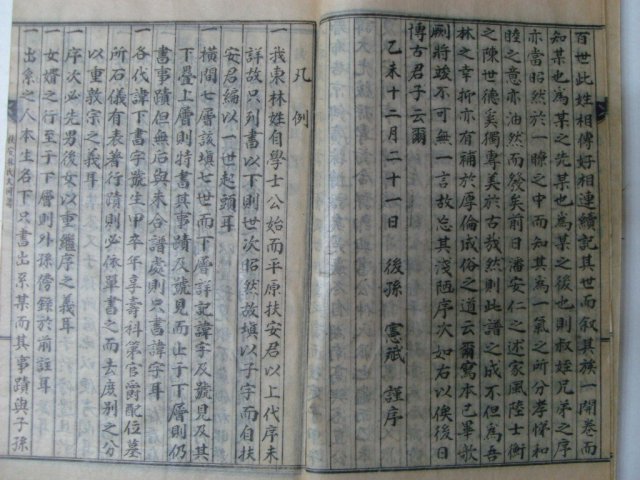 百世此姓相傳好相連續記其世而叙其族一開卷而
知某也爲某之先某也爲某之後也則叔姪兄弟之序
亦當昭然於一瞭之中而知其爲一氣之所分孝悌和
睦之意亦油然而發矣前日潘安仁之述家風陸士衡
之陳世德奚獨專美於古哉然則此譜之成不但爲吾
林之幸抑亦有補於厚倫成俗之道云爾寫本已畢歌
劂將竣不可無一言故忘其淺陋序次如右以俟後日
博古君子云爾
乙未十二月二十一日 後孫 憲斌 謹序
凡例
一我東林姓自學士公始而平原扶安君以上代序未
詳故只列書以下則世次昭然故塡以子字而自扶
安君編以一世起頭耳
一橫間七層該塡七世而下層詳記諱字及號見及其
下疊上層則特書其事蹟及號見而止于下層則仍
書事蹟但無后與未合譜處則只書諱字耳
一各代諱下書字號生甲卒年享壽科第官爵配位墓
所石儀有表著行蹟則必依單書之而去庶別之分
以重敦宗之義耳
一序次必先男後女以重繼序之義耳
一女婿之行至于下層則外孫傍錄於前註耳
一出系之人本生名下只書出系某而其事蹟與子孫